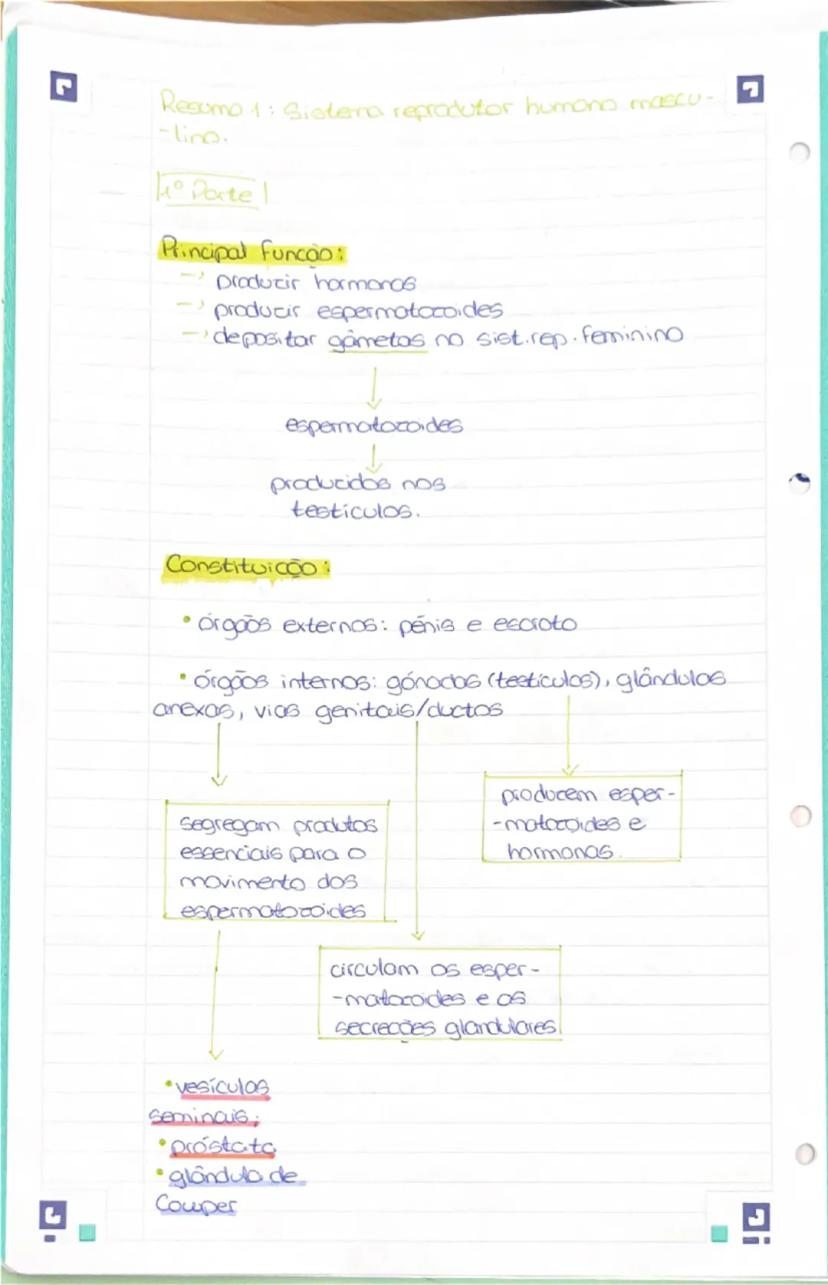 Resumo 1: Sistema reprodutor humano mascu-
-lino.
1º Parte
Principal função:
→ producir hormonas
→ producir espermatozoides
→ depositar gâmetas no sist.rep.feminino
espermatozoides
producidos nos
testículos.
Constituição:
• órgãos externos: pénis e escroto
• órgãos internos: gónadas (testículos), glândulas
anexas, vias genitais/ductos
producem esper-
-matozoides e
hormonas.
segregam produtos
essenciais para o
movimento dos
espermatozoides
circulam os esper-
-matozoides e as
secreções glandulares
• vesículas
seminais;
• próstata
• glândula de
Cowper